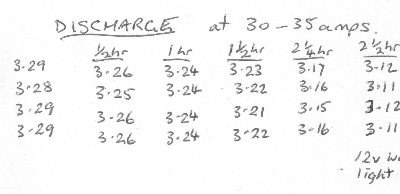 DISCHARGE at 30-35 amps.
½hr 1hr 1½hr 2¼hr 2½hr
3.29 3.26 3.24 3.23 3.17 3.12
3.28 3.25 3.24 3.22 3.16 3.11
3.29 3.26 3.24 3.21 3.15 3.12
3.29 3.26 3.24 3.22 3.16 3.11
12v
light